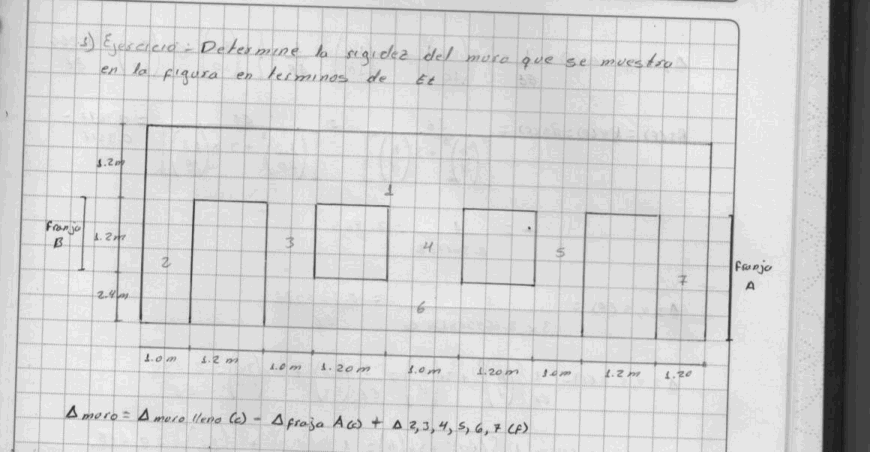 1) Ejercicio = Determine la rigidez del muro que se muestra
en la figura en terminos de Et
1.2m
1
Franja
B
1.2m
2
3
4
5
7
Franja
A
2.4m
6
1.0 m 1.2 m 1.0 m 1.20 m 1.0 m 1.20 m 1.0 m 1.2 m 1.20
Δ muro = Δ muro lleno (c) - Δ franja A(c) + Δ 2,3,4,5,6,7 (f)